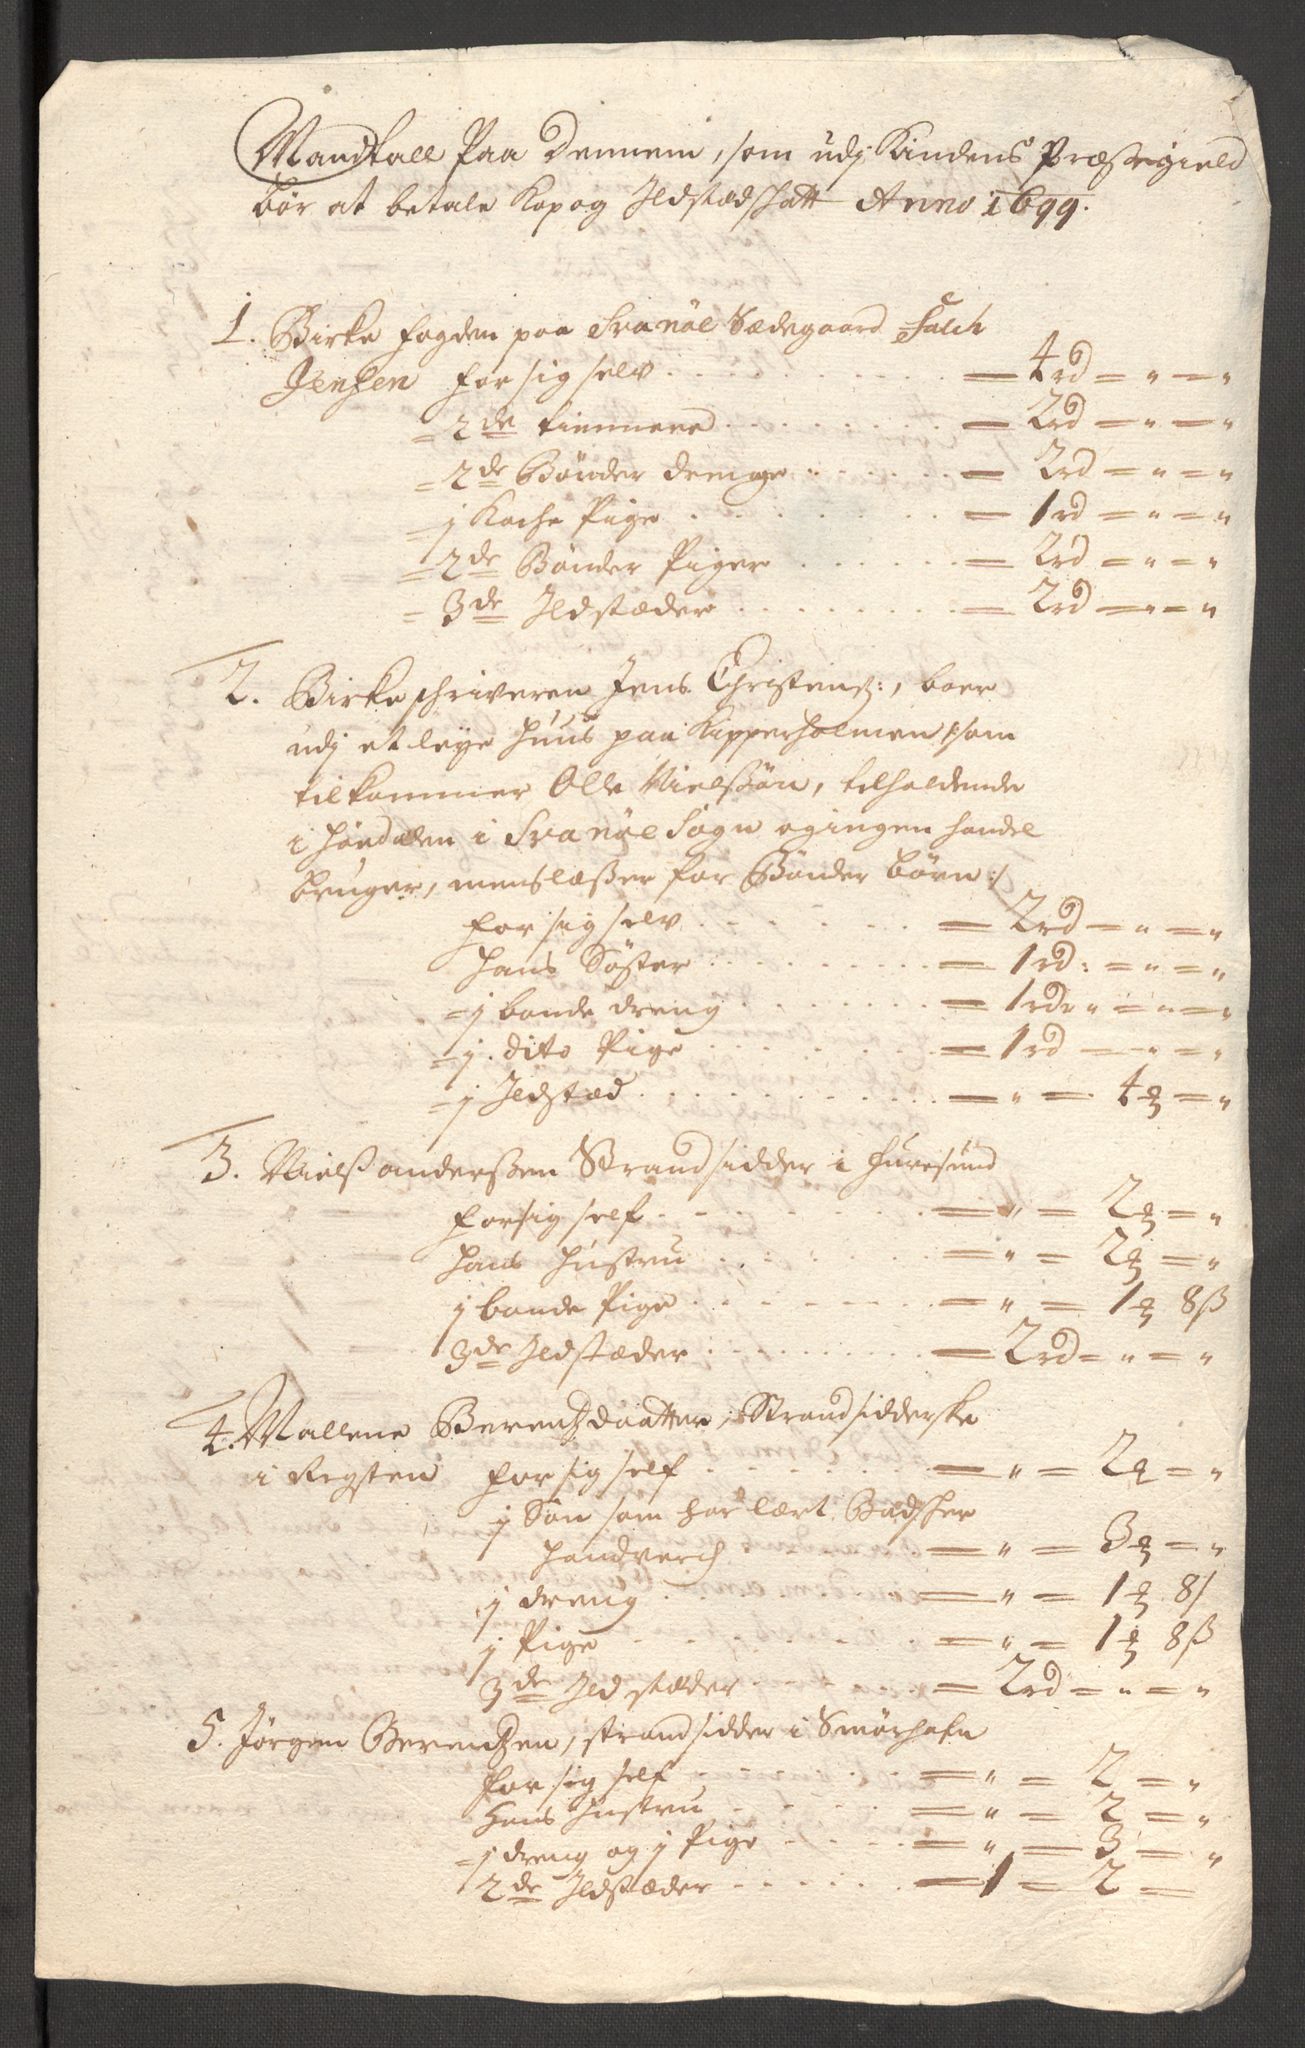 Mandtall Paa Dennem, som udj Kindens Præstegield
bør at betale Kop og Ildstædschatt Anno 1699.
1. Birke fogden paa Svanøe Sædegaard Falch
Jenssen for sig selv - 4 rd = " = "
= 2de tienniere - 2 rd = " = "
= 2de Bønder drenge - 2 rd = " = "
= j Koche Pige - 1 rd = " = "
= 2de Bønder Piger - 2 rd = " = "
= 3de Ildstæder - 2 rd = " = "
2. Birkeschriveren Jens Christens:, boer
udj et leye Huus paa Kipperholmen /: som
tilkommer Olle Nielssøn, tilholdende
i Høydalen i Svanøe Sogn og ingen handel
bruger, mens læsser for Bønder børn :/
for sig selv - 2 rd = " = "
Hans Søster - 1 rd: = " = "
= j bonde dreng - 1 rd " = " = "
= j dito Pige - 1 rd - " = "
= j Ildstæd - " = 4 ₻ = "
3. Nielss anderssen Strandsidder i Furesund
for sig self - " = 2 ₻ = "
Hans Hustru - " = 2 ₻ = "
j bonde Pige - " = 1 ₻ 8 ß
3de Ildstæder - 2 rd = " = "
4. Mallene Berentzdaatter, Strandsidderske
i Rgsten for sig self - " = 2 ₻ = "
j Søn som har lært Badscher
Handverch - " = 3 ₻ = "
j dreng - " = 1 ₻ 8 /
j Pige - " = 1 ₻ 8 ß
3de Ildstæder - 2 rd = " = "
5. Jørgen Berentzen, strandsidder i Smørhafn
for sig self - " = 2 = "
Hans Hustru - " = 2 = "
= j dreng og j Pige - " = 3 = "
2de Ildstæder - 1 = 2 =